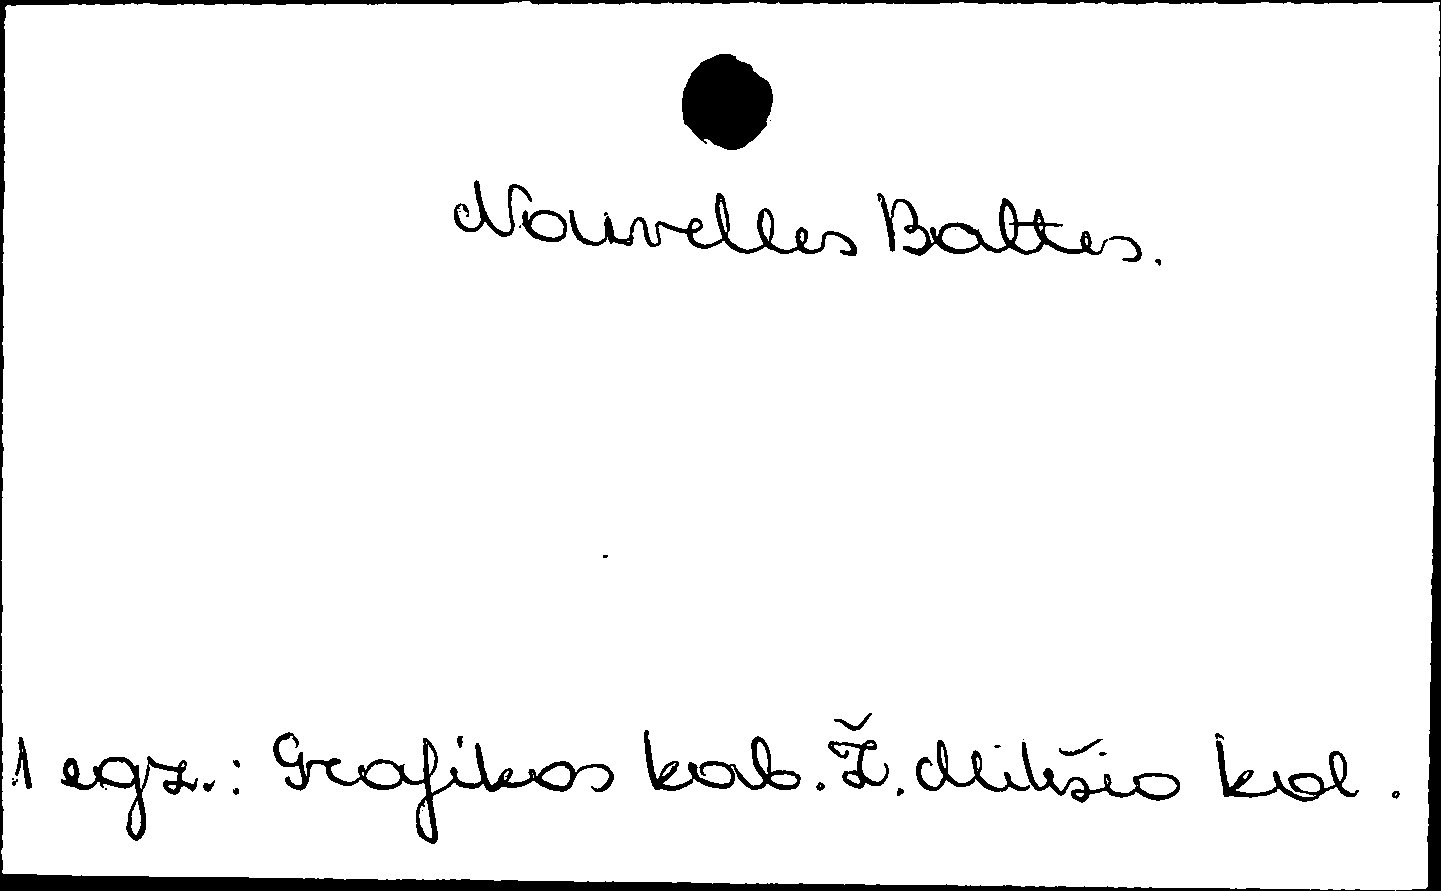 Nouvelles Baltes.
1 egz.: Grafikos kab. Ž. Mikšio kol.